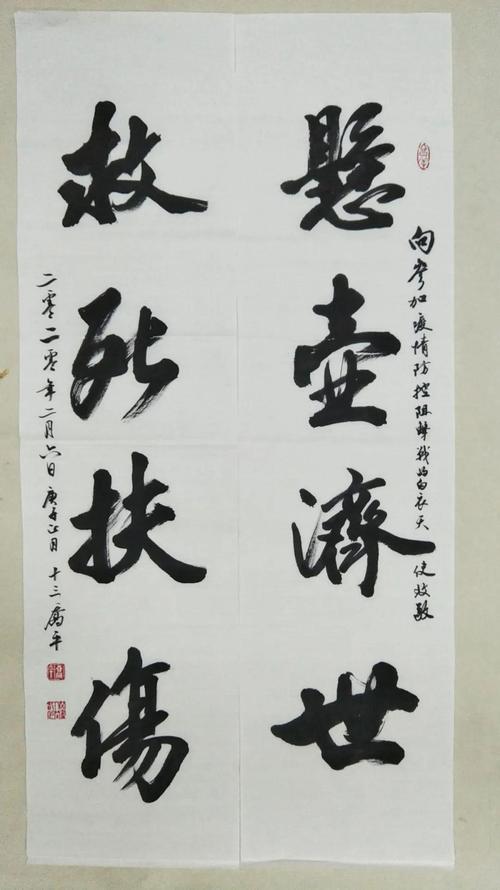 向参加疫情防控阻擊戰的白衣天使致敬
懸壺濟世
救死扶傷
二零二零年二月六日庚子正月十三